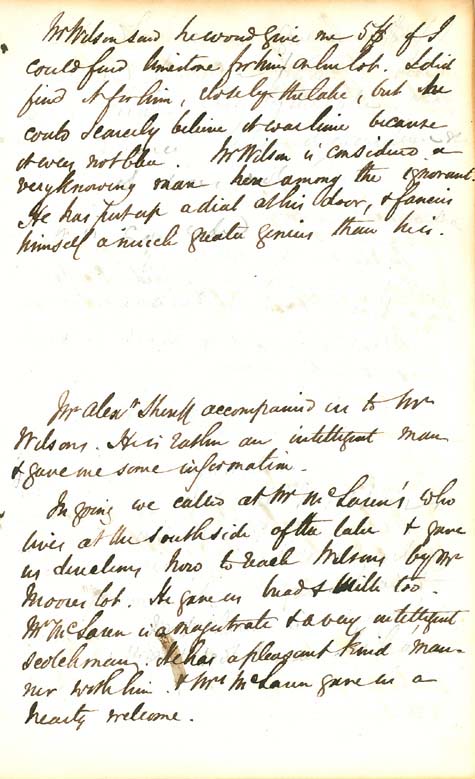 Mr Wilson said he would give me 5$ if I
could find limestone for him on his lot. I did
find it for him, close by the lake, but he
could scarcely believe it was lime because
it was not blue. Mr Wilson is considered a
very knowing man here among the ignorant.
He has put up a dial at his door, & fancies
himself a much greater genius than he is.
Mr Alexr Sheriff accompanied us to Mr
Wilsons. He is rather an intelligent man
& gave me some information.
In going we called at Mr McLaren's who
lives at the south side of the lake & gave
us directions how to reach Wilsons by Mr
Moores lot. He gave us bread & milk too.
Mr McLaren is a magistrate & a very intelligent
Scotchman. He has a pleasant kind man-
ner with him. & Mrs McLaren gave us a
hearty welcome.